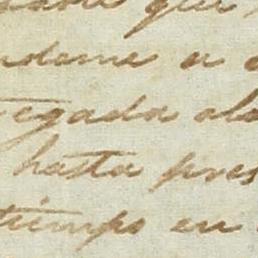 que
ndome a
egada ala
hasta pres
tiempo en